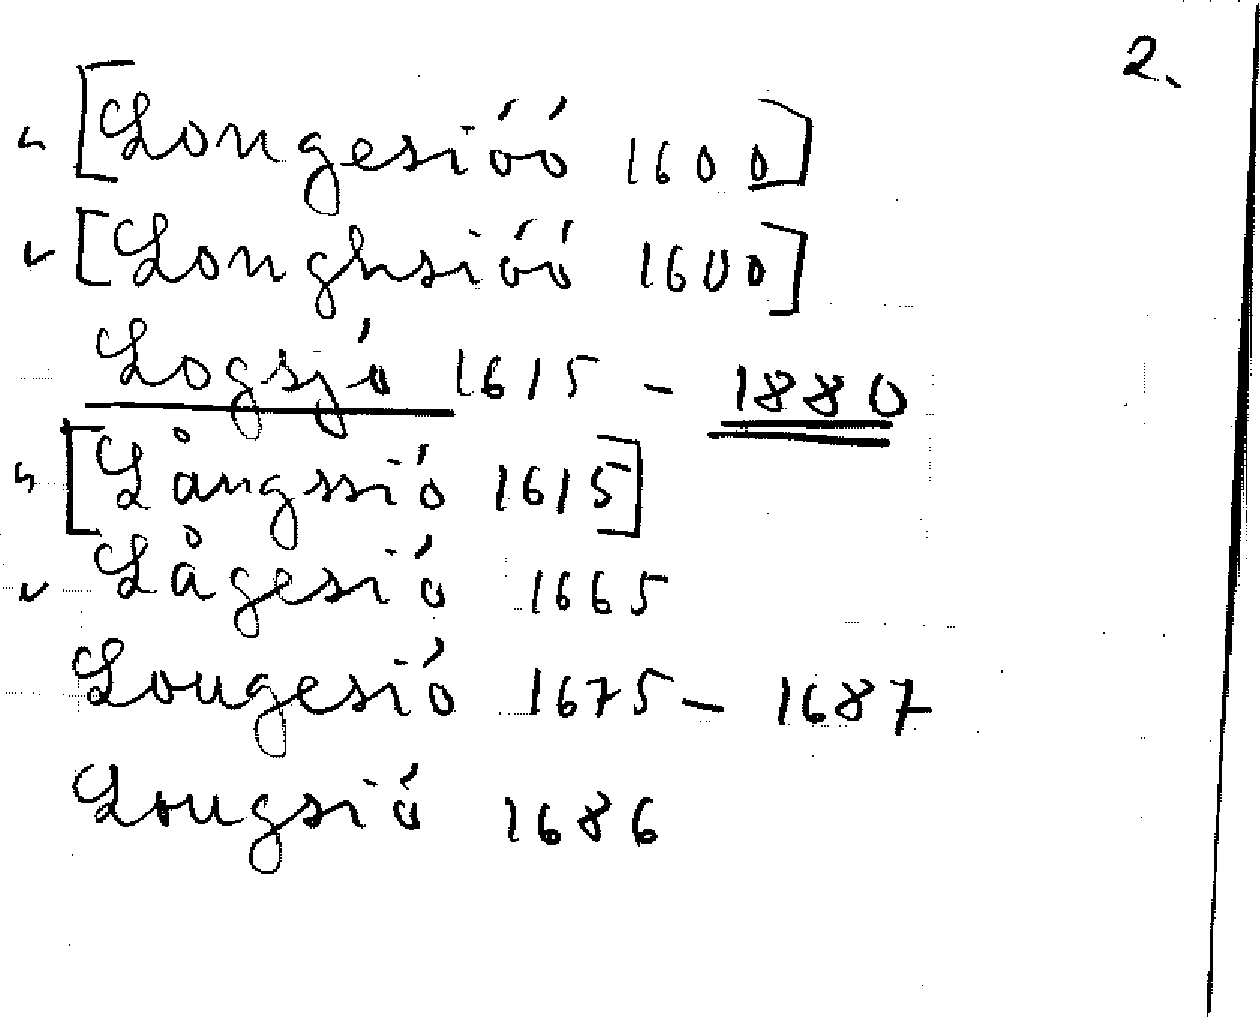 2.
[Longesióó 1600]
[Longhsióó 1600]
Logsjó 1615 - 1880
[Långssió 1615]
Lågesió 1665
Lougesió 1675 - 1687
Lougsió 1686